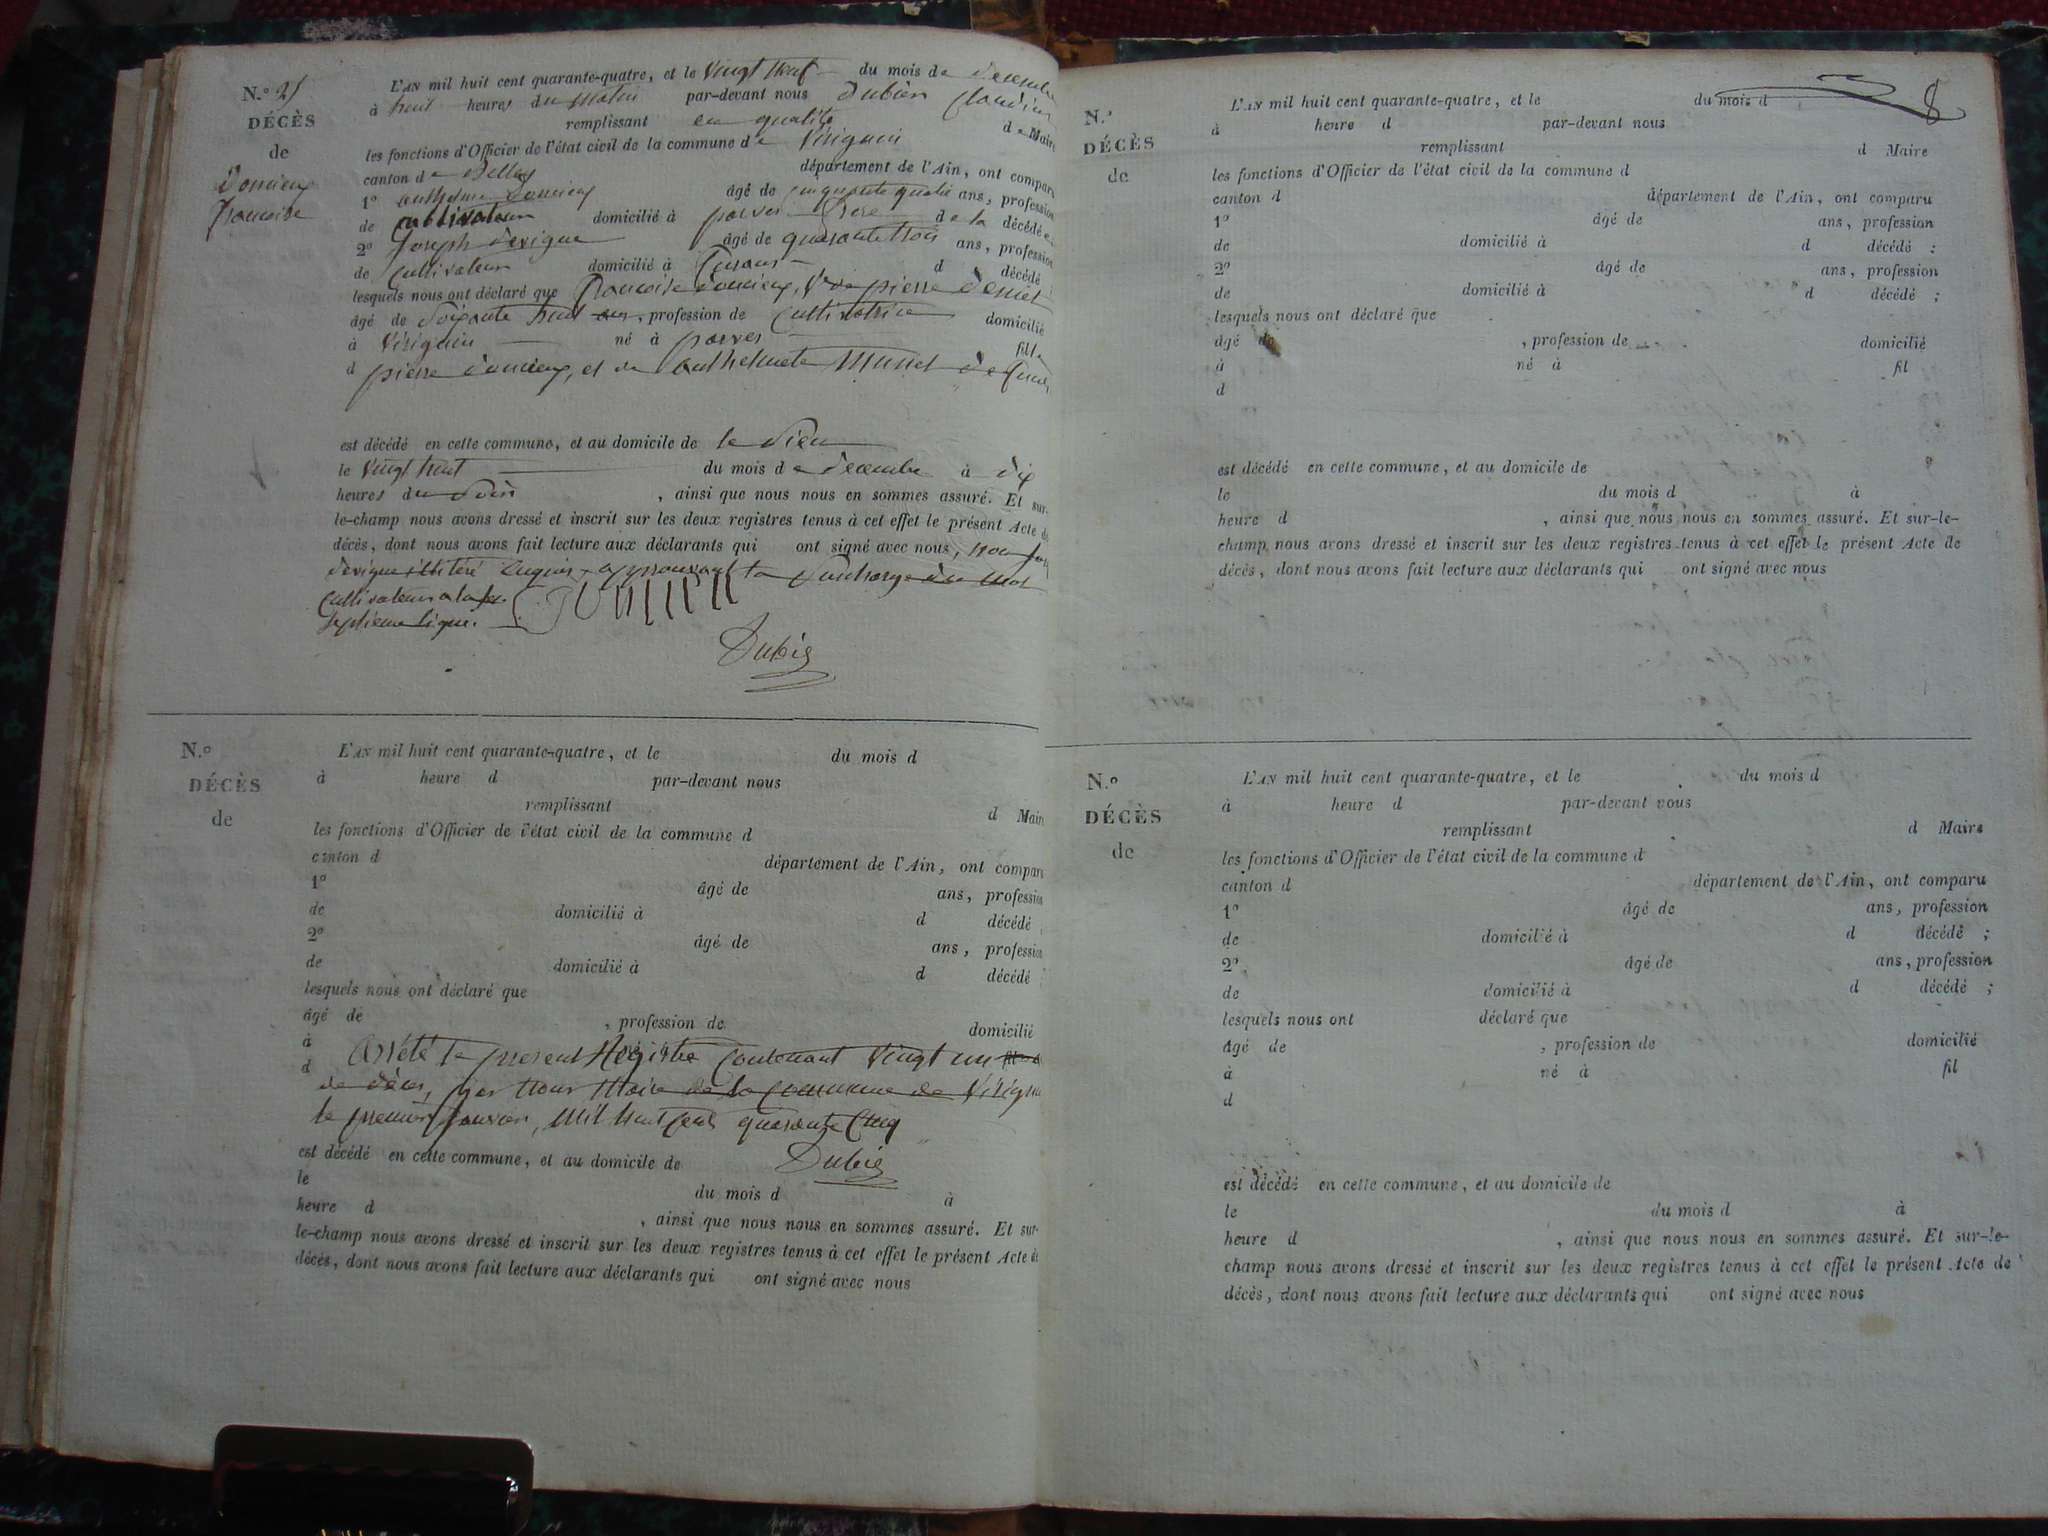 N.º 21
DÉCÈS
de
Doncieux
francoise
L'AN mil huit cent quarante-quatre, et le vingt neuf du mois de décembre
à huit heures du matin par-devant nous Dubien Claudius
remplissant en qualité de Maire
les fonctions d'Officier de l'état civil de la commune de Virignin
canton de Belley département de l'Ain, ont comparu
1º anthelme Doncieux âgé de cinquante quatre ans, profession
de cultivateur domicilié à parves frere de la décédée
2º Joseph devigne âgé de quarante trois ans, profession
de cultivateur domicilié à d décédé
lesquels nous ont déclaré que francoise doncieux, Ve de pierre
âgé de soixante huit ans, profession de cultivatrice domicilié
à Virignin né à parves fille
d pierre doncieux, et de anthelmete
est décédé en cette commune, et au domicile de le sien
le vingt huit du mois de decembre à dix
heures du soir , ainsi que nous nous en sommes assuré. Et sur-
le-champ nous avons dressé et inscrit sur les deux registres tenus à cet effet le présent Acte de
décès, dont nous avons fait lecture aux déclarants qui ont signé avec nous, non
devigne illitéré approuvant la surcharge du mot
cultivateur a la
septieme ligne.
Dubien
N.º
DÉCÈS
de
L'AN mil huit cent quarante-quatre, et le du mois d
à heure d par-devant nous
remplissant d Maire
les fonctions d'Officier de l'état civil de la commune d
canton d département de l'Ain, ont comparu
1º âgé de ans, profession
de domicilié à d décédé ;
2º âgé de ans, profession
de domicilié à d décédé
lesquels nous ont déclaré que
âgé de , profession de domicilié
à
d Arrété le present Registre contenant vingt un
de décès, par nous Maire de la commune de Virignin
le premier janvier, mil huit cent quarante cinq
est décédé en cette commune, et au domicile de Dubien
le du mois d à
heure d , ainsi que nous nous en sommes assuré. Et sur-
le-champ nous avons dressé et inscrit sur les deux registres tenus à cet effet le présent Acte de
décès, dont nous avons fait lecture aux déclarants qui ont signé avec nous
8
N.º
DÉCÈS
de
L'AN mil huit cent quarante-quatre, et le du mois d
à heure d par-devant nous
remplissant d Maire
les fonctions d'Officier de l'état civil de la commune d
canton d département de l'Ain, ont comparu
1º âgé de ans, profession
de domicilié à d décédé ;
2º âgé de ans, profession
de domicilié à d décédé ;
lesquels nous ont déclaré que
âgé de , profession de domicilié
à né à fil
d
est décédé en cette commune, et au domicile de
le du mois d à
heure d , ainsi que nous nous en sommes assuré. Et sur-le-
champ nous avons dressé et inscrit sur les deux registres tenus à cet effet le présent Acte de
décès, dont nous avons fait lecture aux déclarants qui ont signé avec nous
N.º
DÉCÈS
de
L'AN mil huit cent quarante-quatre, et le du mois d
à heure d par-devant vous
remplissant d Maire
les fonctions d'Officier de l'état civil de la commune d
canton d département de l'Ain, ont comparu
1º âgé de ans, profession
de domicilié à d décédé ;
2º âgé de ans, profession
de domicilié à d décédé ;
lesquels nous ont déclaré que
âgé de , profession de domicilié
à né à fil
d
est décédé en cette commune, et au domicile de
le du mois d à
heure d , ainsi que nous nous en sommes assuré. Et sur-le-
champ nous avons dressé et inscrit sur les deux registres tenus à cet effet le présent Acte de
décès, dont nous avons fait lecture aux déclarants qui ont signé avec nous